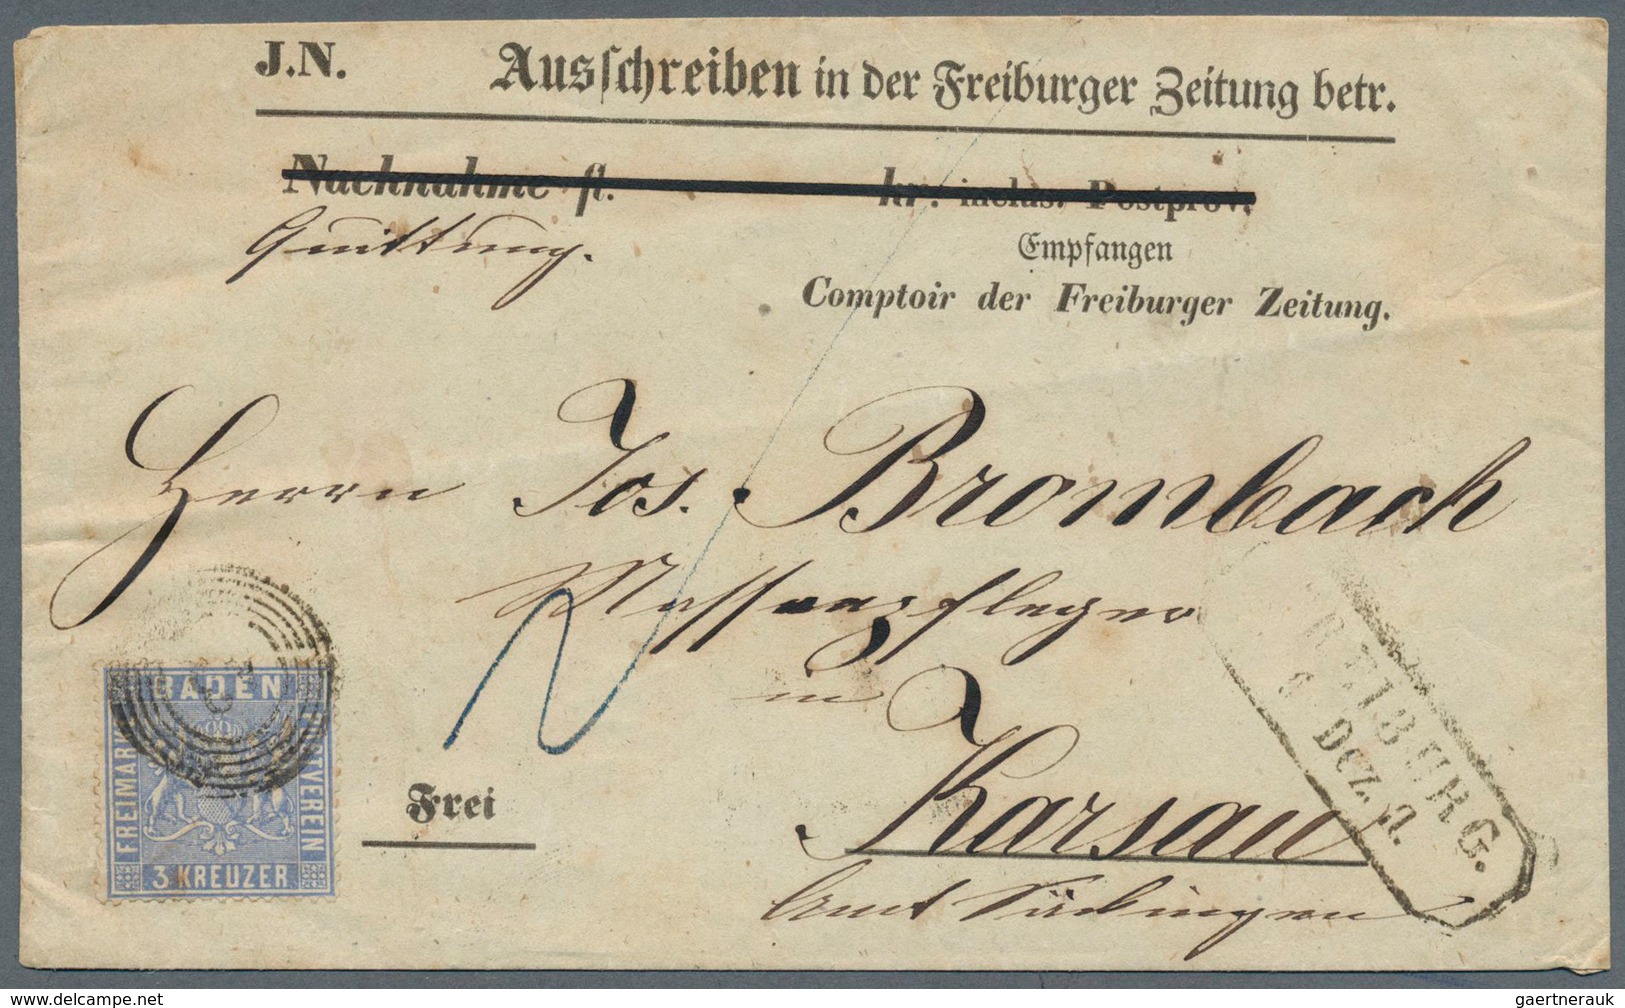 J.N. Ausschreiben in der Freiburger Zeitung betr.
Nachnahme fl. kr: inclus. Postprov.
Quittung.
Empfangen
Comptoir der Freiburger Zeitung.
Herrn Jos. Brombach
in
Karsau
Amt
Frei
BADEN
FREIMARKE
POSTVEREIN
3 KREUZER
FREIBURG.
Dez.
delcampe.net
gaertnerauk